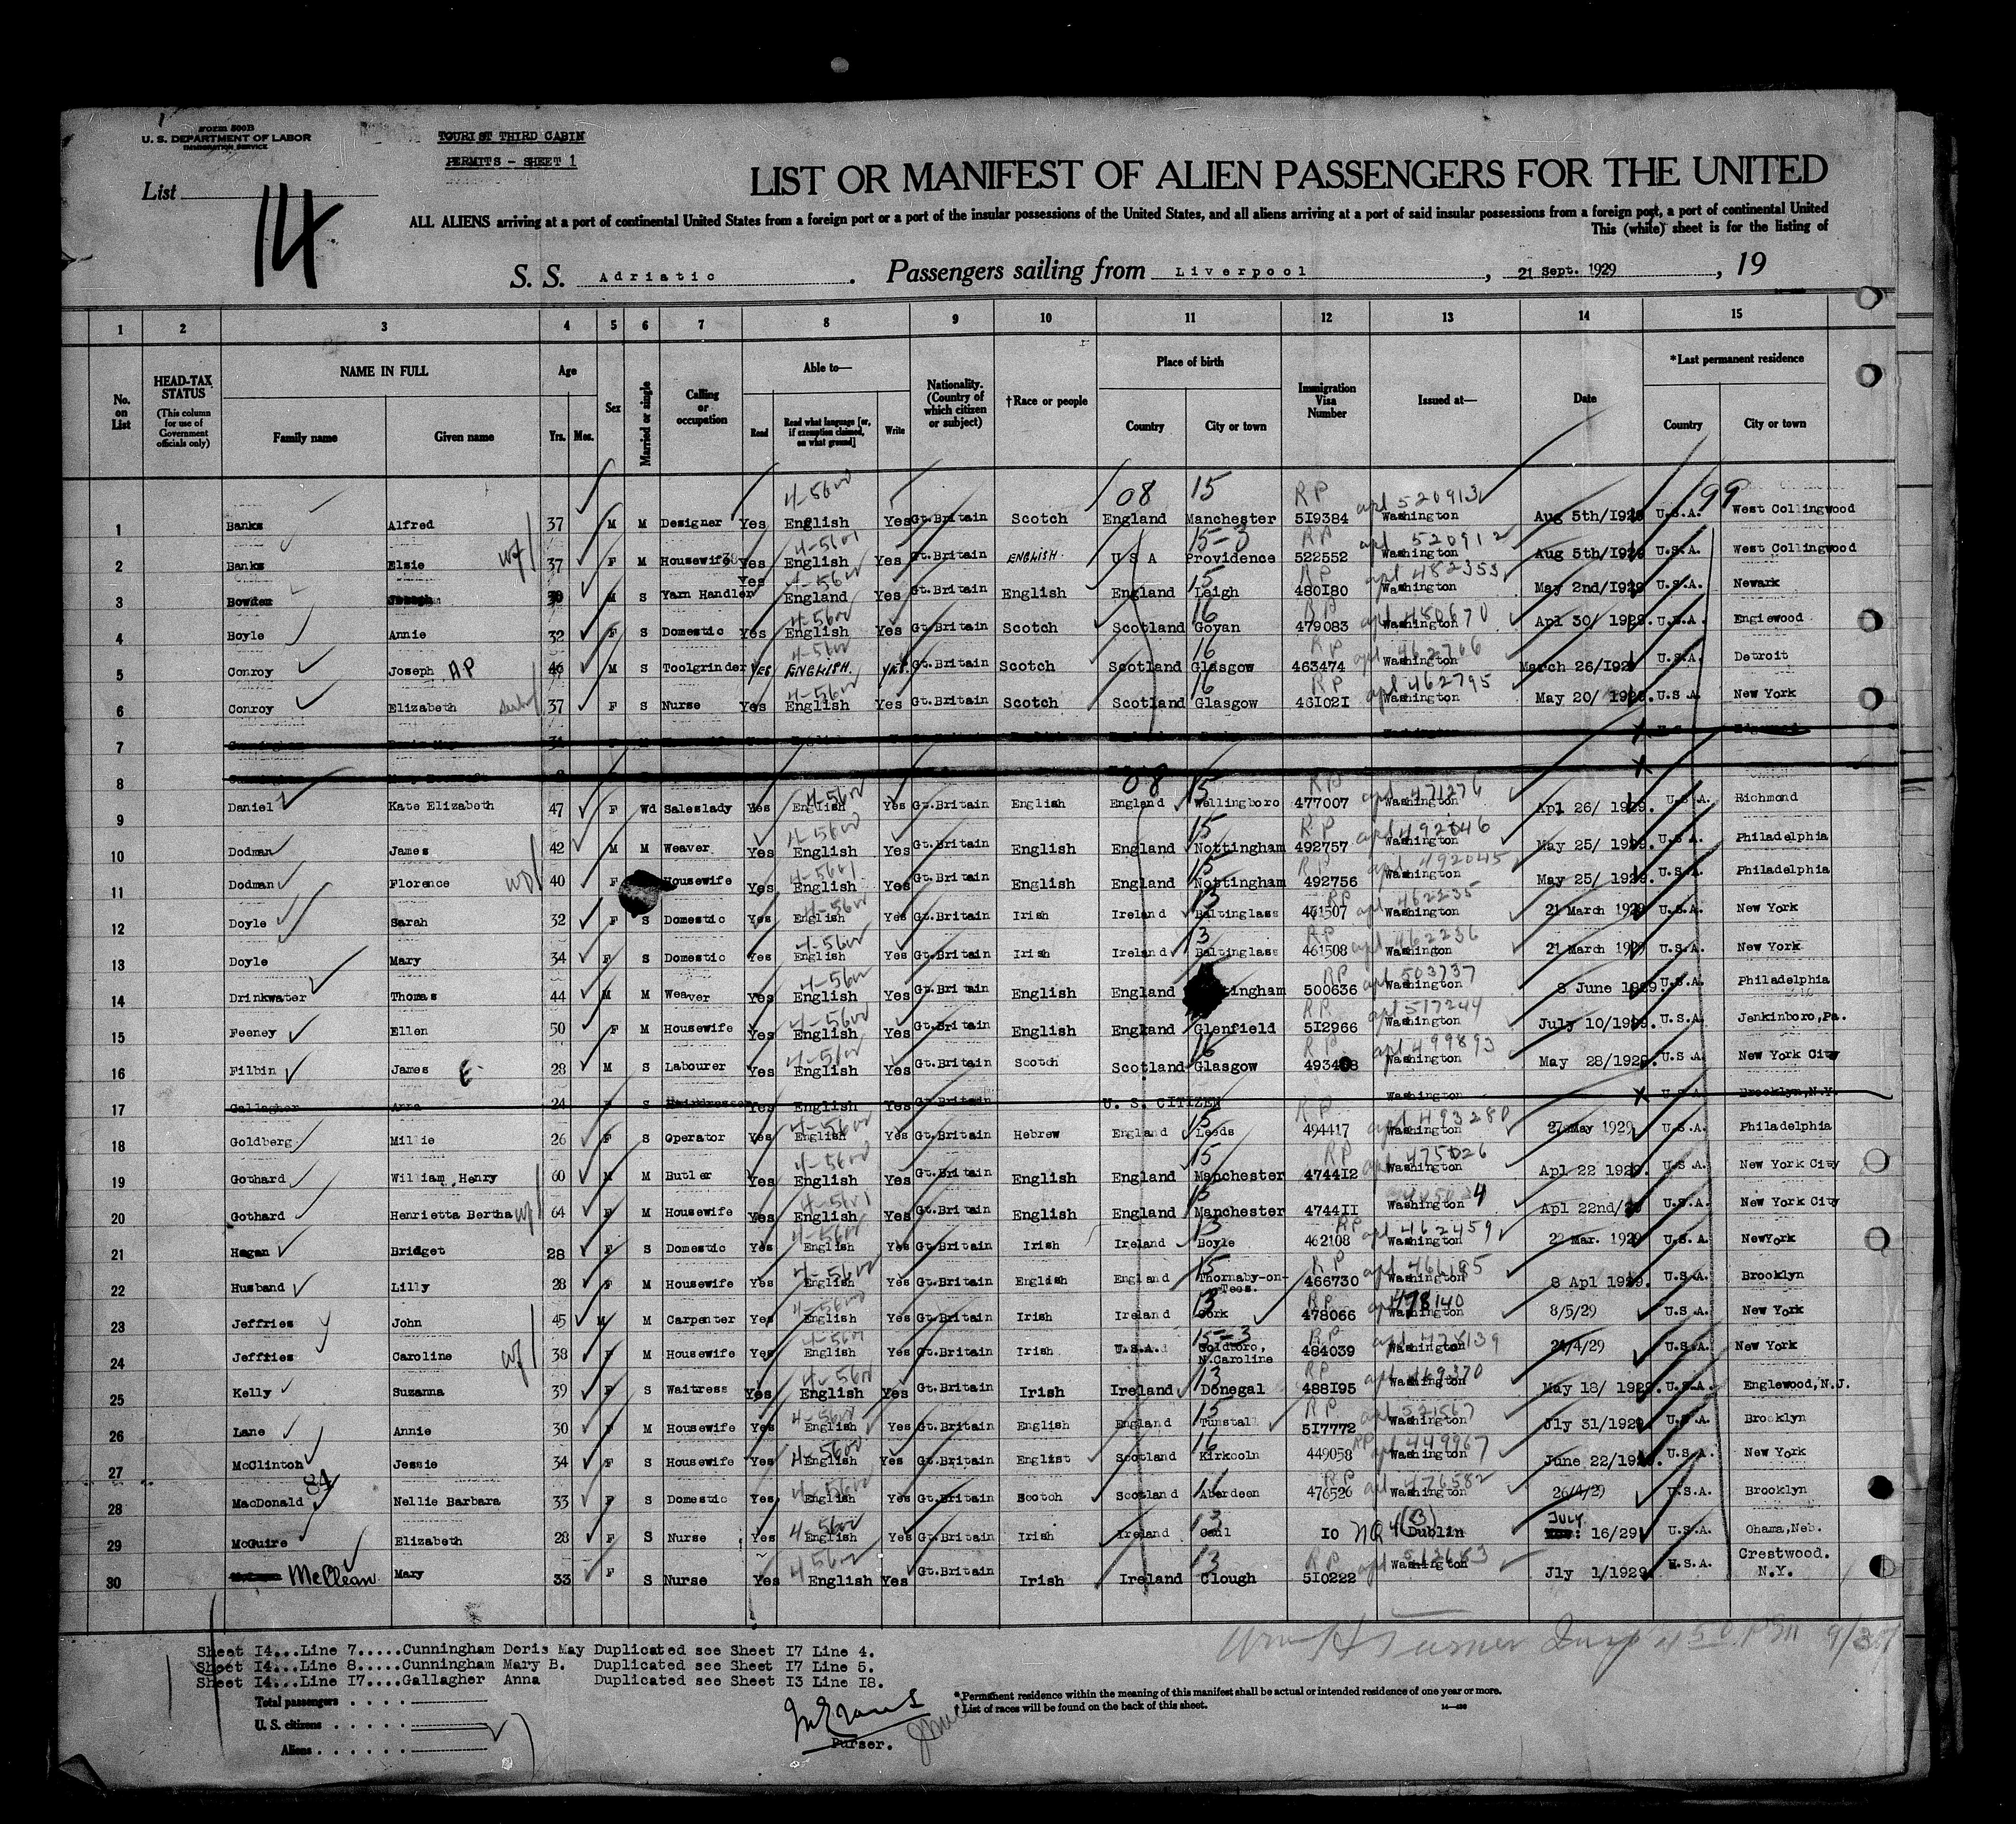 Form 500B
U. S. DEPARTMENT OF LABOR
IMMIGRATION SERVICE
TOURIST THIRD CABIN
PERMITS - SHEET 1
List 14
LIST OR MANIFEST OF ALIEN PASSENGERS FOR THE UNITED
ALL ALIENS arriving at a port of continental United States from a foreign port or a port of the insular possessions of the United States, and all aliens arriving at a port of said insular possessions from a foreign port, a port of continental United
This (white) sheet is for the listing of
S. S. Adriatic. Passengers sailing from Liverpool, 21 Sept. 1929, 19
1 2 3 4 5 6 7 8 9 10 11 12 13 14 15
No. on List
HEAD-TAX STATUS (This column for use of Government officials only)
NAME IN FULL Family name Given name
Age Yrs. Mos.
Sex
Married or single
Calling or occupation
Able to— Read Read what language [or, if exemption claimed, on what ground] Write
Nationality. (Country of which citizen or subject)
†Race or people
Place of birth Country City or town
Immigration Visa Number
Issued at—
Date
*Last permanent residence Country City or town
08 15 4-5600 RP apl 520913 99
1 Banks Alfred 37 M M Designer Yes English Yes Gt.Britain Scotch England Manchester 519384 Washington Aug 5th/1929 U.S.A. West Collingwood
wf 15-3 RP apl 520912
2 Banks Elsie 37 F M Housewife Yes English Yes Gt.Britain ENGLISH U S A Providence 522552 Washington Aug 5th/1929 U.S.A. West Collingwood
4-5600 15 RP apl 482353
3 Bowden M S Yarn Handler Yes England Yes Gt.Britain English England Leigh 480180 Washington May 2nd/1929 U.S.A. Newark
4-5600 16 RP apl 450670
4 Boyle Annie 32 F S Domestic Yes English Yes Gt.Britain Scotch Scotland Govan 479083 Washington Apl 30/ 1929. U.S.A. Englewood
4-5600 16 RP apl 462766
5 Conroy Joseph AP 46 M S Toolgrinder YES ENGLISH. YES. Gt.Britain Scotch Scotland Glasgow 463474 Washington March 26/192 U.S.A. Detroit
4-5600 16 RP apl 462795
6 Conroy Elizabeth 37 F S Nurse Yes English Yes Gt.Britain Scotch Scotland Glasgow 461021 Washington May 20/ 1929. U.S.A. New York
7 Cunningham Doris May 31 English Washington x
8 Cunningham x
08 15 4-5600 RP apl 471276
9 Daniel Kate Elizabeth 47 F Wd Saleslady Yes English Yes Gt.Britain English England Wellingboro 477007 Washington Apl 26/ 1929. U.S.A. Richmond
4-5600 15 RP apl 492046
10 Dodman James 42 M M Weaver Yes English Yes Gt.Britain English England Nottingham 492757 Washington May 25/ 1929. U.S.A. Philadelphia
15 RP apl 492045
11 Dodman Florence 40 F Housewife Yes English Yes Gt.Britain English England Nottingham 492756 Washington May 25/ 1929. U.S.A. Philadelphia
4-5600 13 RP apl 462235
12 Doyle Sarah 32 F S Domestic Yes English Yes Gt.Britain Irish Ireland Baltinglass 461507 Washington 21 March 1929 U.S.A. New York
4-5600 13 RP apl 462236
13 Doyle Mary 34 F S Domestic Yes English Yes Gt.Britain Irish Ireland Baltinglass 461508 Washington 21 March 1929 U.S.A. New York
4-5600 RP apl 503737
14 Drinkwater Thomas 44 M M Weaver Yes English Yes Gt.Britain English England ingham 500636 Washington 8 June 1929. U.S.A. Philadelphia
4-5600 RP apl 517244
15 Feeney Ellen 50 F M Housewife Yes English Yes Gt.Britain English England Glenfield 512966 Washington July 10/1929. U.S.A. Jenkinboro,Pa.
4-5600 16 RP apl 499893
16 Filbin James E. 28 M S Labourer Yes English Yes Gt.Britain Scotch Scotland Glasgow Washington May 28/1929. U.S.A. New York City
17 Gallagher Anna 24 F S Hairdresser Yes English Yes Gt.Britain U. S. CITIZEN Washington x U.S.A. Brooklyn,N.Y.
4-5600 15 RP apl 493280
18 Goldberg Millie 26 F S Operator Yes English Yes Gt.Britain Hebrew England Leeds 494417 Washington 27 May 1929 U.S.A. Philadelphia
4-5600 15 RP apl 475026
19 Gothard William Henry 60 M M Butler Yes English Yes Gt.Britain English England Manchester 474412 Washington Apl 22 1929. U.S.A. New York City
wf 4-5601 15
20 Gothard Henrietta Bertha 64 F M Housewife Yes English Yes Gt.Britain English England Manchester 474411 Washington Apl 22nd/ U.S.A. New York City
4-5600 13 RP apl 462459
21 Hagan Bridget 28 F S Domestic Yes English Yes Gt.Britain Irish Ireland Boyle 462108 Washington 22 Mar. 1929 U.S.A. NewYork
4-5600 15 RP apl 466185
22 Husband Lilly 28 F M Housewife Yes English Yes Gt.Britain English England Thornaby-on-Tees. 466730 Washington 8 Apl 1929. U.S.A. Brooklyn
4-5600 13 RP apl 478140
23 Jeffries John 45 M M Carpenter Yes English Yes Gt.Britain Irish Ireland Cork 478066 Washington 8/5/29 U.S.A. New York
wf 15-3 RP apl 478139
24 Jeffries Caroline 38 F M Housewife Yes English Yes Gt.Britain Irish U.S.A. Goldboro, N.Caroline 484039 Washington 24/4/29 U.S.A. New York
4-5600 13 RP apl 469370
25 Kelly Suzanna 39 F S Waitress Yes English Yes Gt.Britain Irish Ireland Donegal 488195 Washington May 18/ 1929. U.S.A. Englewood,N.J.
4-5600 15 RP apl 521567
26 Lane Annie 30 F M Housewife Yes English Yes Gt.Britain English England Tunstall 517772 Washington Jly 31/1929. U.S.A. Brooklyn
4-5600 16 RP apl 449967
27 McClinton Jessie 34 F S Housewife Yes English Yes Gt.Britain Englist Scotland Kirkcoln 449058 Washington June 22/1929. U.S.A. New York
84 4-5600 16 RP apl 476582
28 MacDonald Nellie Barbara 33 F S Domestic Yes English Yes Gt.Britain Scotch Scotland Aberdeen 476526 Washington 26/4/29 U.S.A. Brooklyn
4-5600 13 NQ 4(3) JULY
29 McGuire Elizabeth 28 F S Nurse Yes English Yes Gt.Britain Irish Ireland 10 Dublin 16/29 U.S.A. Ohama,Neb.
4-5600 13 RP apl 512683
30 McClean Mary 33 F S Nurse Yes English Yes Gt.Britain Irish Ireland Clough 510222 Washington Jly 1/1929 U.S.A. Crestwood. N.Y.
Sheet 14...Line 7.....Cunningham Doris May Duplicated see Sheet 17 Line 4.
Sheet 14...Line 8.....Cunningham Mary B. Duplicated see Sheet 17 Line 5.
Sheet 14...Line 17....Gallagher Anna Duplicated see Sheet 13 Line 18.
Total passengers
U. S. citizens
Aliens
Purser.
*Permanent residence within the meaning of this manifest shall be actual or intended residence of one year or more.
†List of races will be found on the back of this sheet.